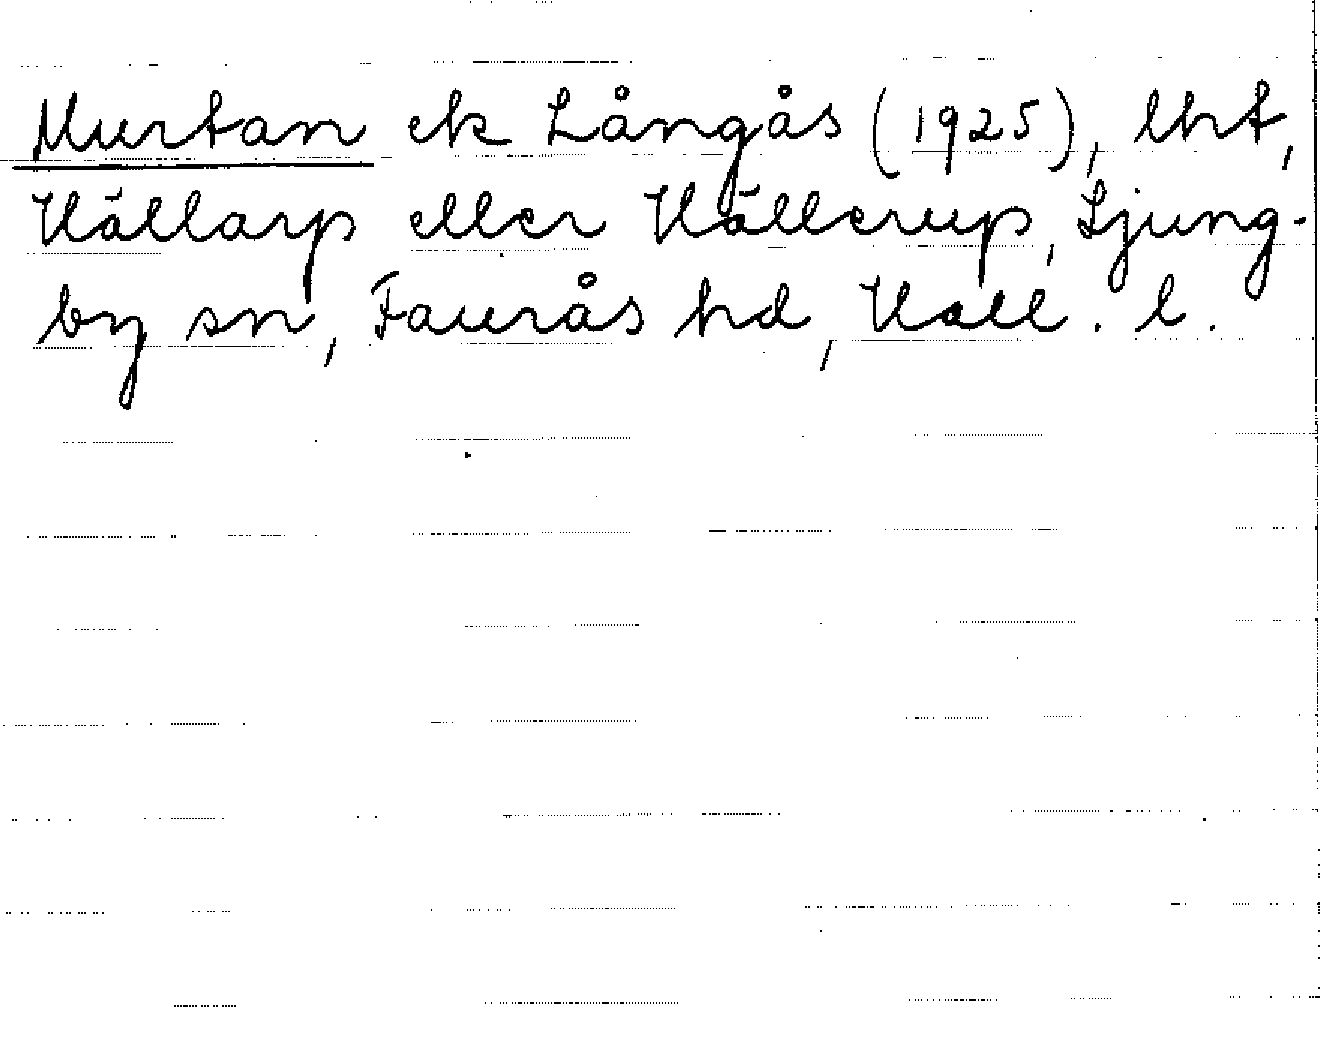 Murtan ek Långås (1925), lht,
Hällarp eller Hällerup, Ljung-
by sn, Faurås hd, Hall. l.